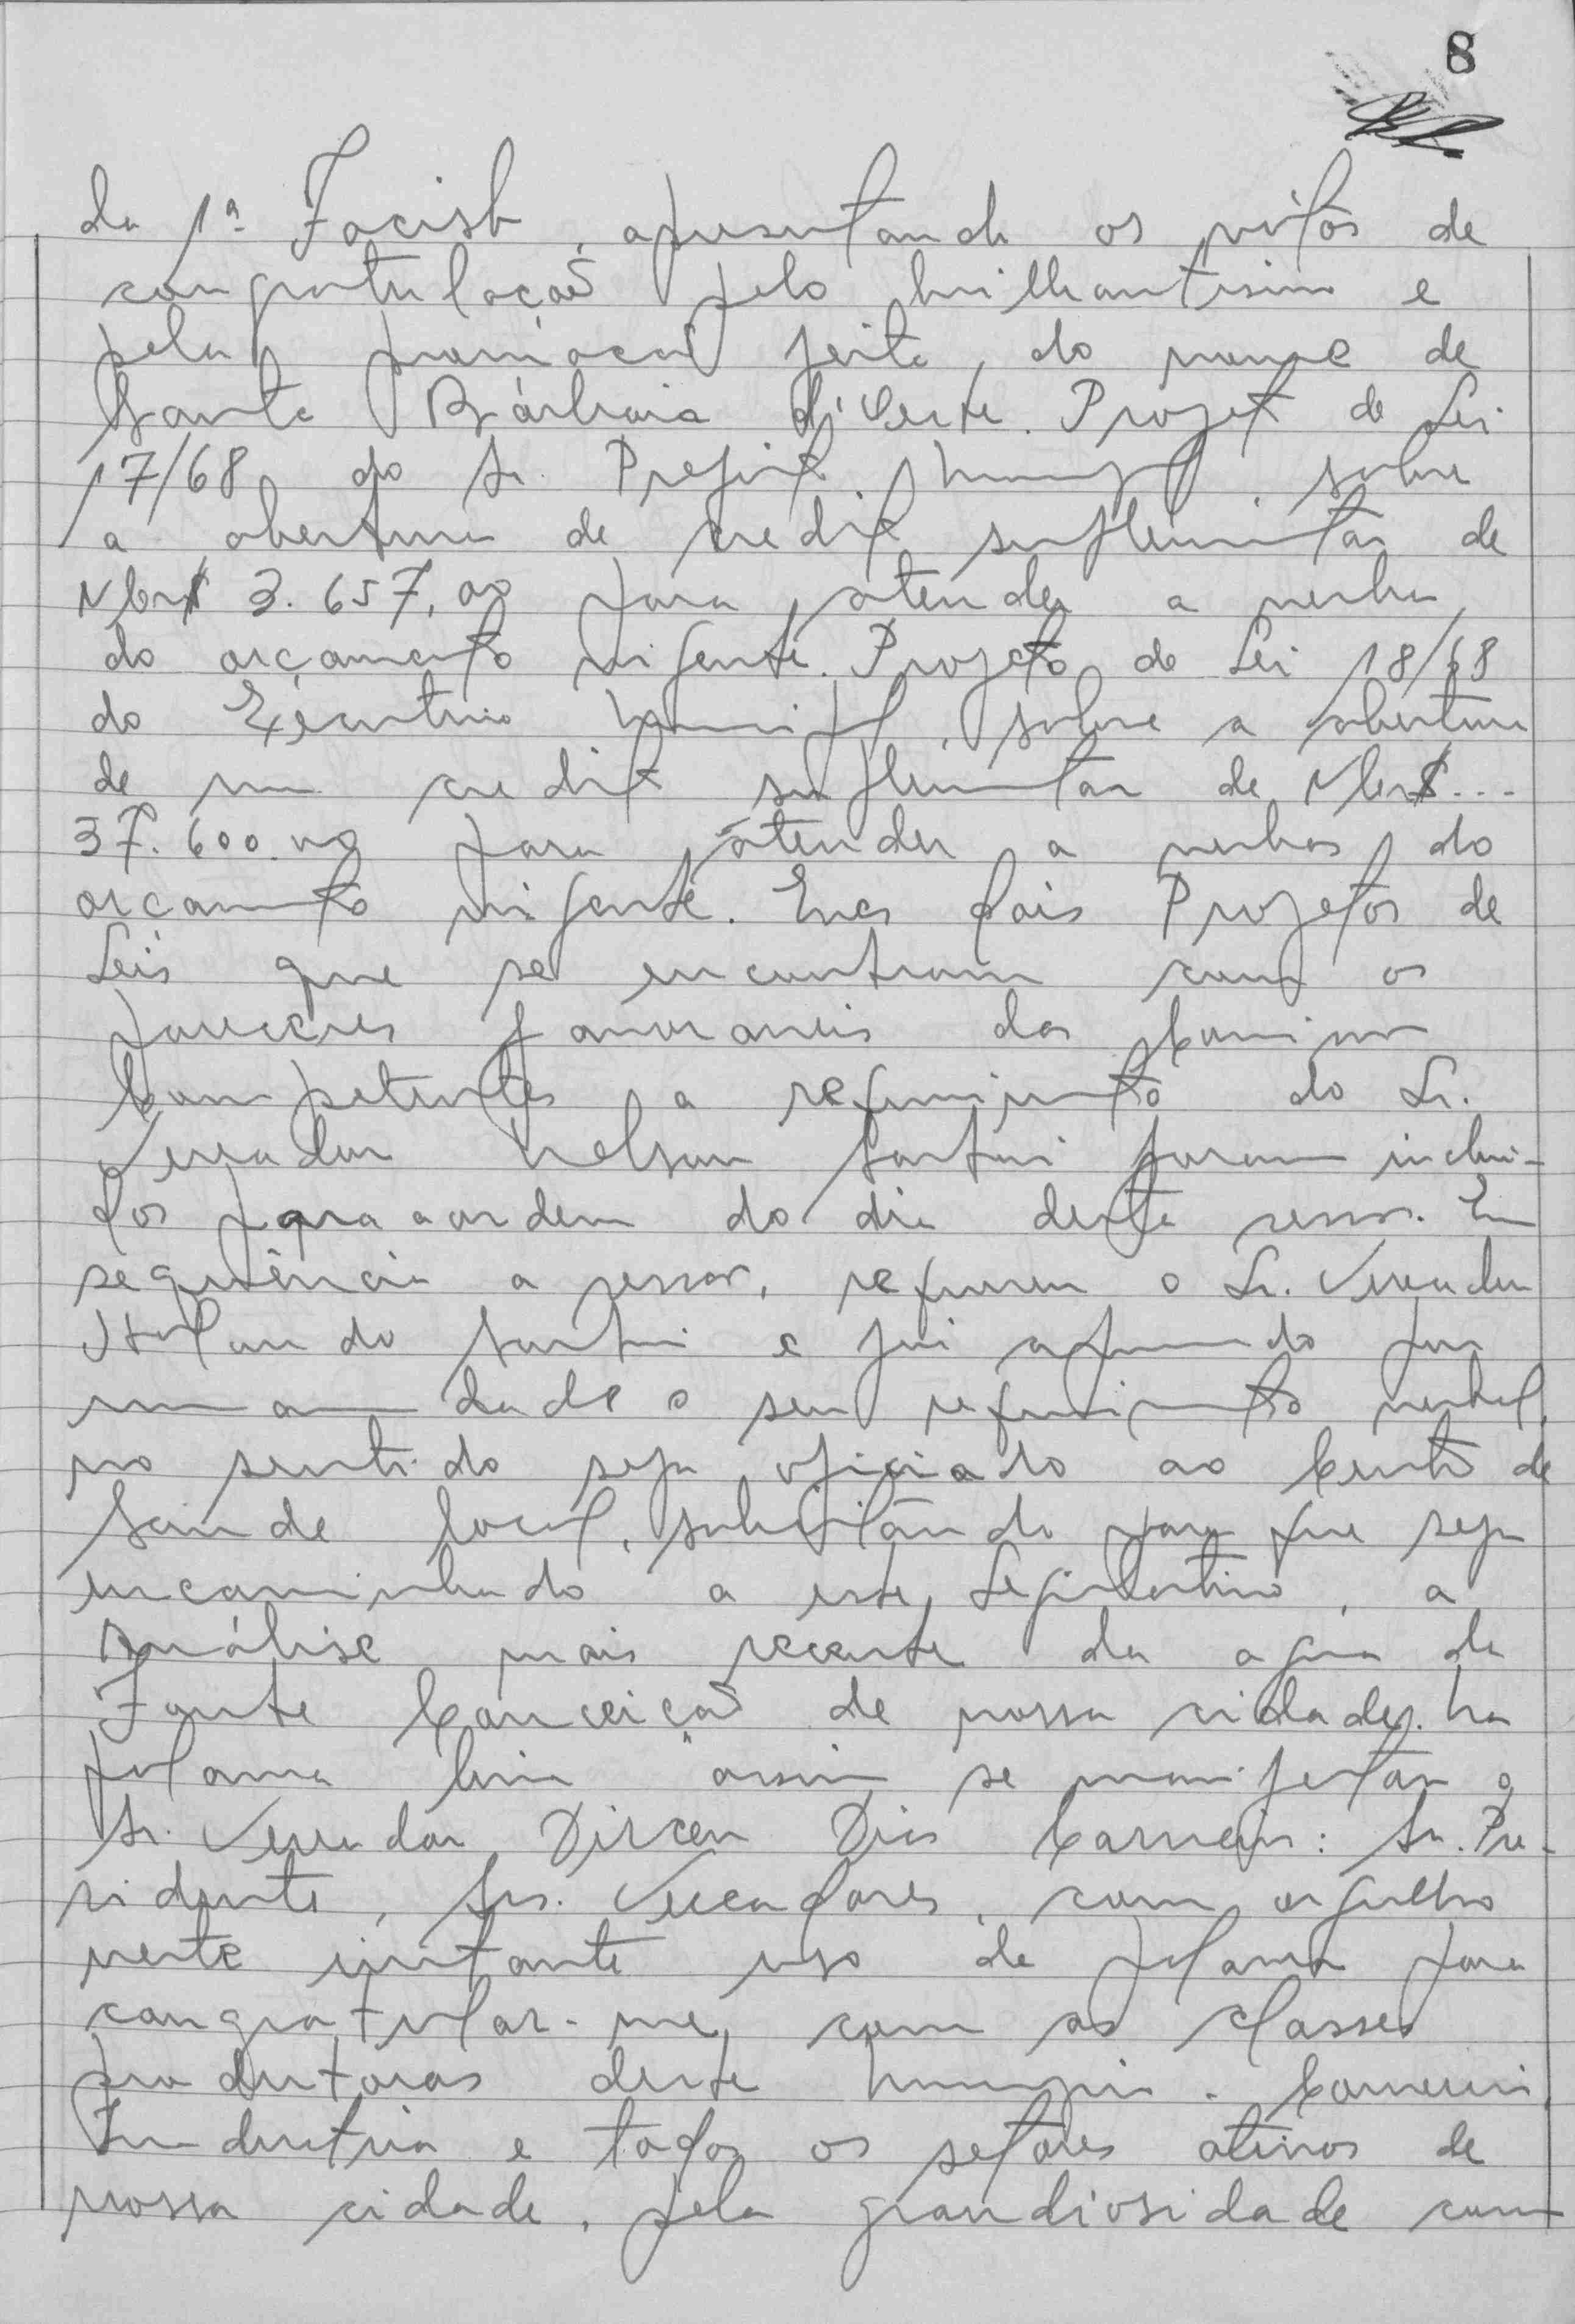 8
da 1ª Facisb, apresentando os votos de
congratulação pelo brilhantismo e
pela promoção feita, do nome de
Santa Bárbara d'Oeste. Projeto de Lei
17/68, do Sr. Prefeito Municipal, sobre
a abertura de credito suplementar de
NCr$ 3.657,00 para atender a verba
do orçamento vigente. Projeto de Lei 18/68
do Executivo Municipal, sobre a abertura
de um credito suplementar de NCr$...
37.600.00 para atender a verbas do
orçamento vigente. Esses dois Projetos de
Leis que se encontram com os
pareceres favoraveis das Comissões
Competentes, a requerimento do Sr.
Vereador Nelson Sartori foram inclui-
dos para a ordem do dia desta sessão. Em
sequência a sessão, requereu o Sr. Vereador
Sartori e foi aprovado por
unanimidade o seu requerimento verbal,
no sentido seja oficiado ao Centro de
Saúde local, solicitando para que seja
encaminhado a este Legislativo, a
análise mais recente da agua da
Fonte Conceição de nossa cidade. Na
palavra livre assim se manifestou o
Sr. Vereador Dirceu Dias Carneiro: Sr. Pre-
sidente, Srs. Vereadores, com orgulho
neste instante uso da palavra para
congratular-me, com as classes
produtoras deste Municipio. Comercio,
Industria e todos os setores ativos de
nossa cidade, pela grandiosidade com